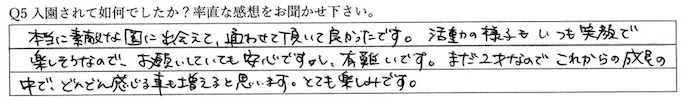 Q5 入園されて如何でしたか？率直な感想をお聞かせ下さい。
本当に素敵な園に出会えて、通わせて頂いて良かったです。活動の様子も いつも笑顔で
楽しそうなので、お願いしていても安心ですし、有難いです。まだ2才なので これからの成長の
中で、どんどん感じる事も増えると思います。とても楽しみです。